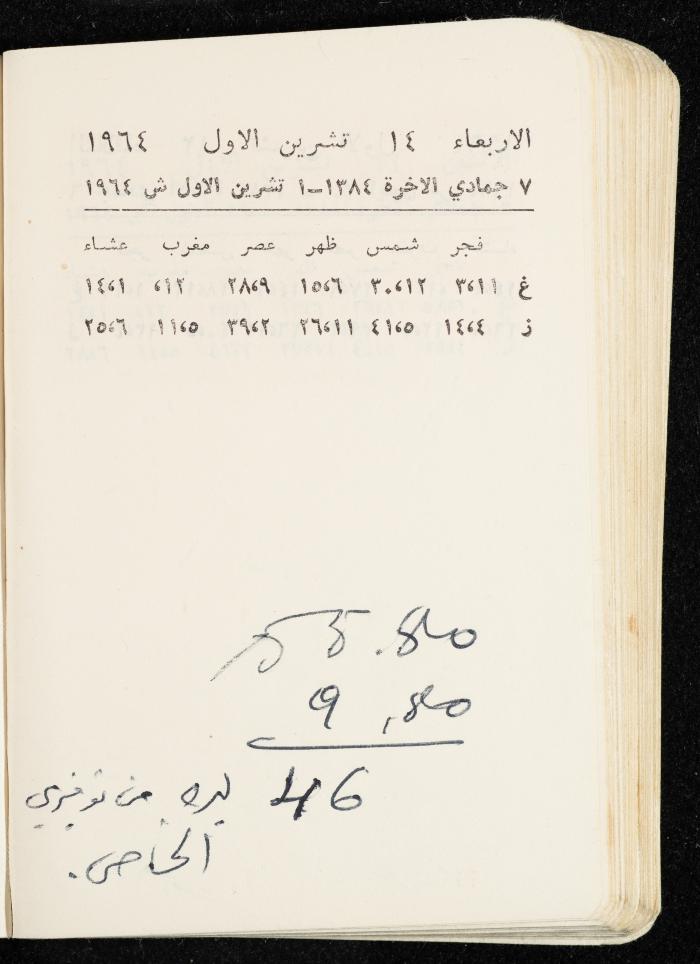 الاربعاء ١٤ تشرين الاول ١٩٦٤
٧ جمادي الاخرة ١٣٨٤–١ تشرين الاول ش ١٩٦٤
فجر شمس ظهر عصر مغرب عشاء
غ ٣،١١ ٣٠،١٢ ١٥،٦ ٢٨،٩ ،١٢ ١٤،١
ز ١٤،٤ ٤١،٥ ٢٦،١١ ٣٩،٢ ١١،٥ ٢٥،٦
55.80
9.80
46 ليره من توفيري
الخاص.